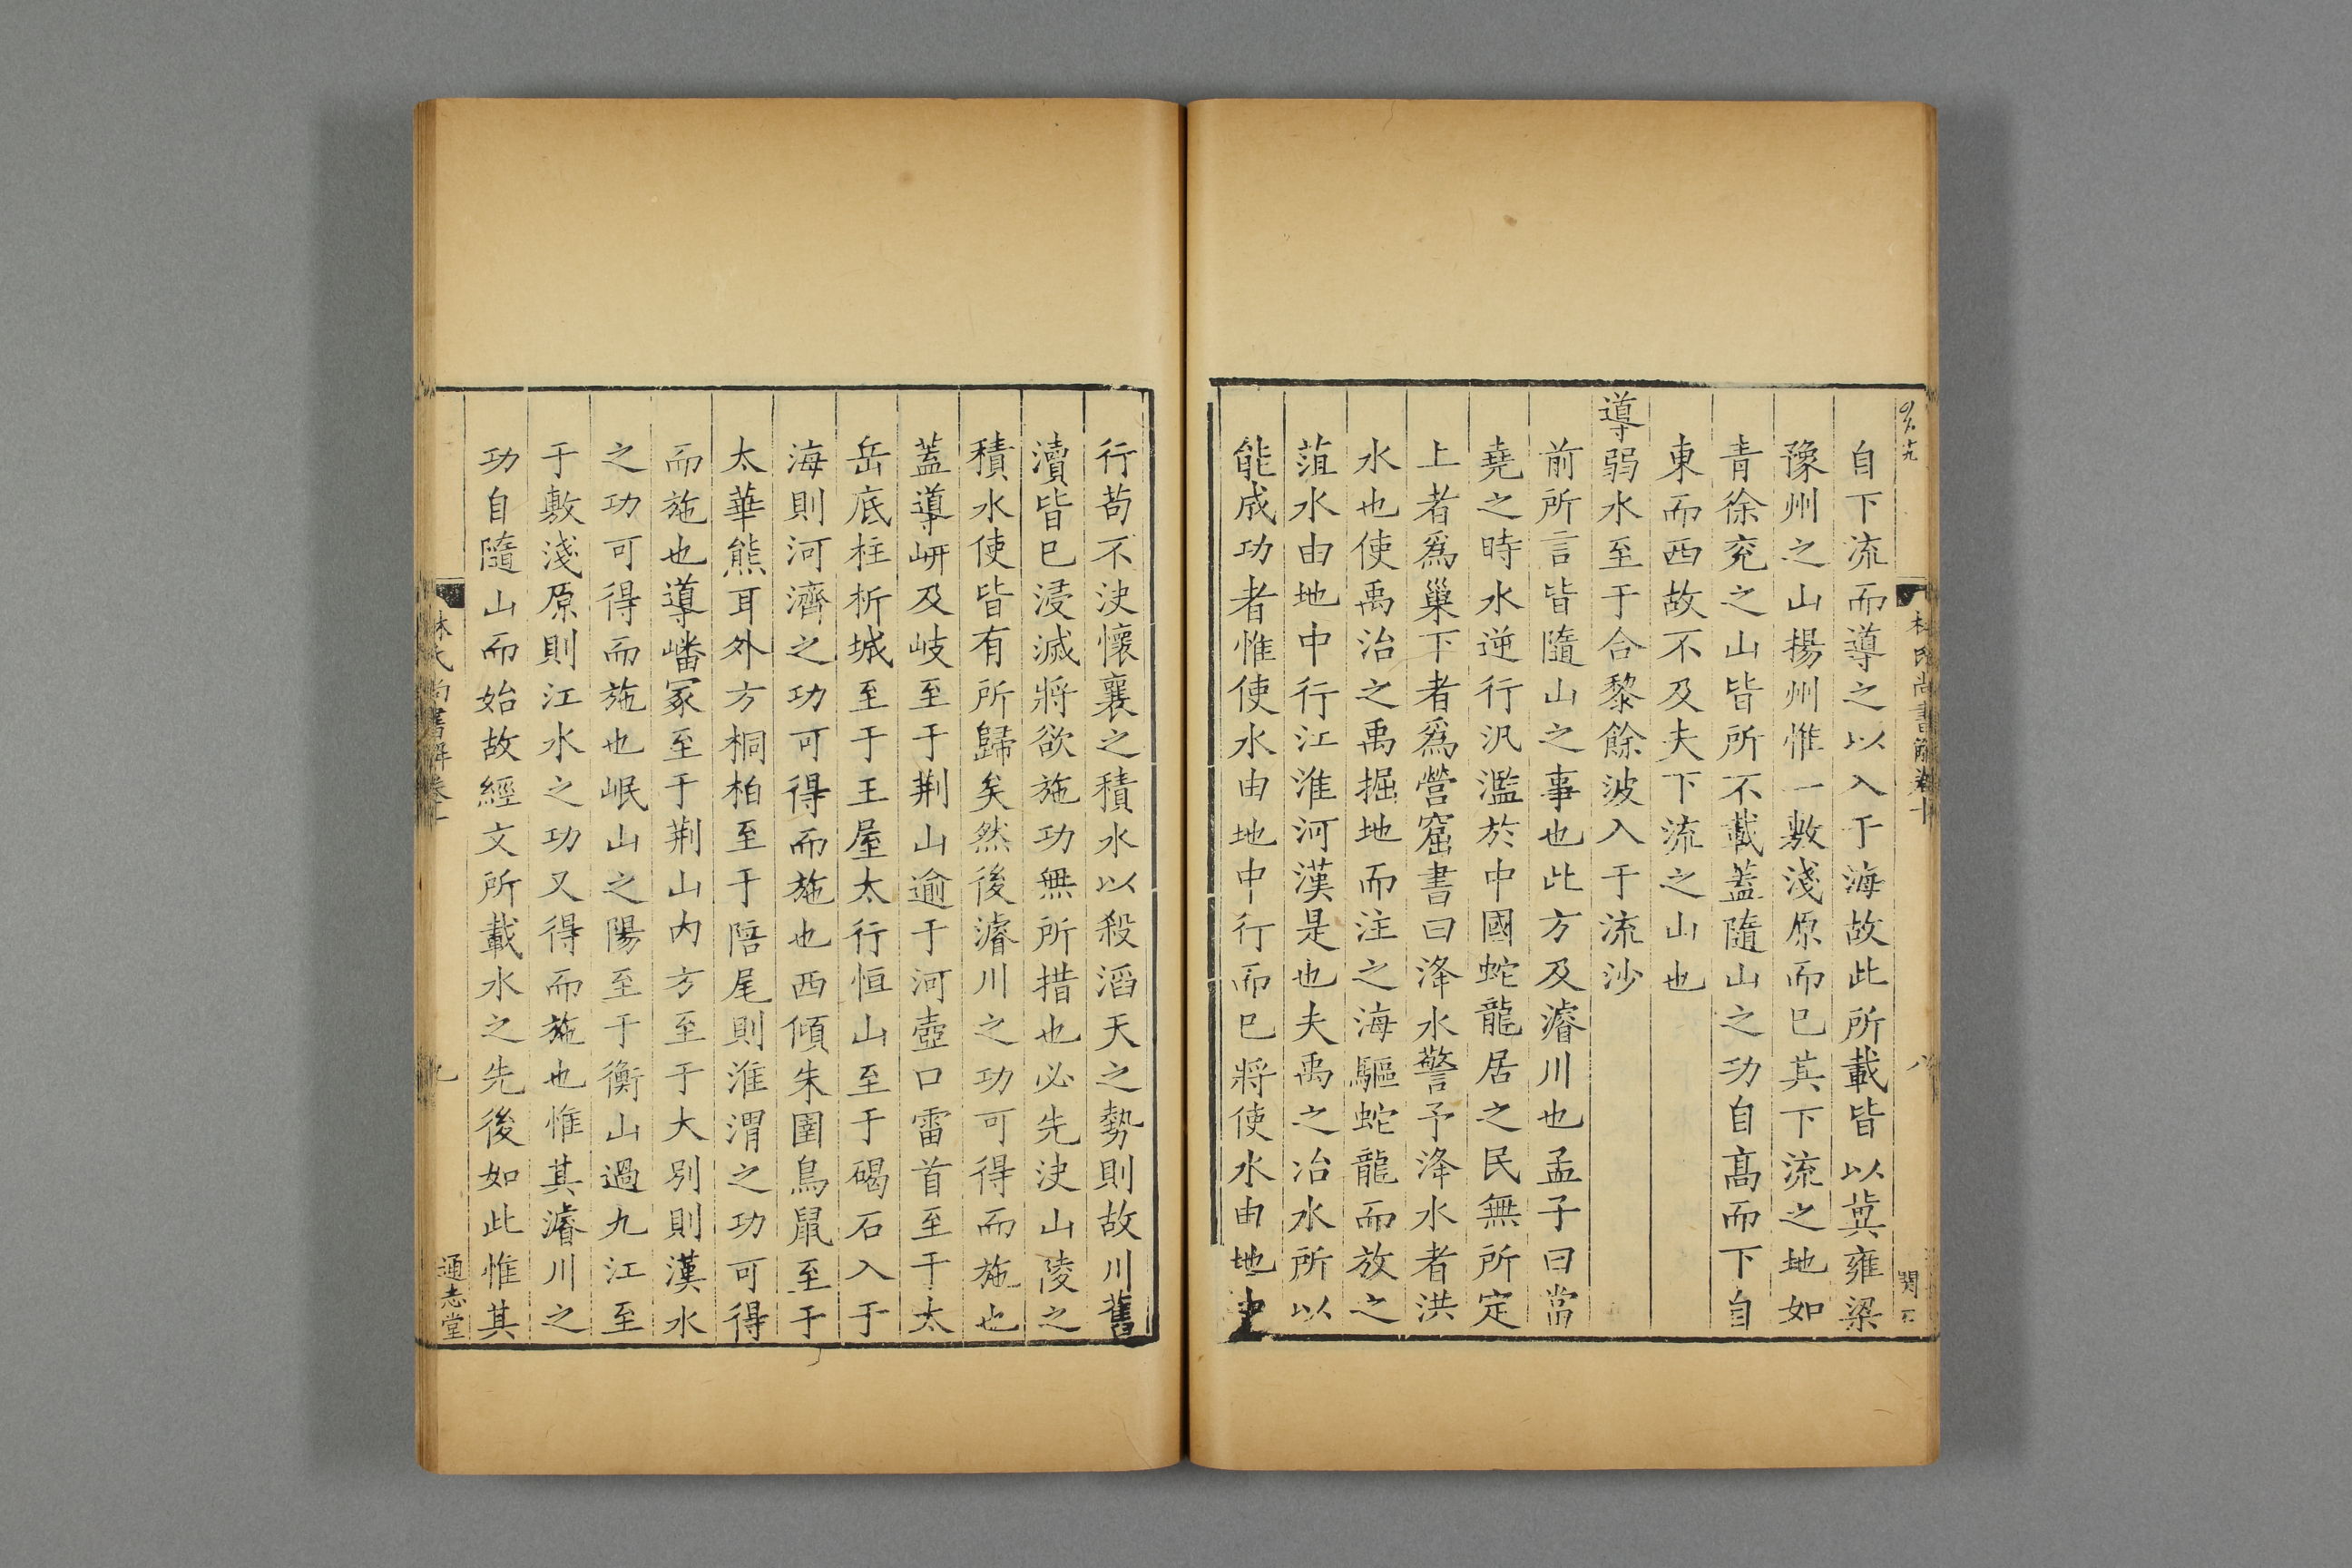 自下流而導之以入于海故此所載皆以冀雍梁
豫州之山揚州惟一敷淺原而已其下流之地如
青徐兖之山皆所不載蓋隨山之功自髙而下自
東而西故不及夫下流之山也
導弱水至于合黎餘波入于流沙
前所言皆隨山之事也此方及濬川也孟子曰當
堯之時水逆行汎濫於中國蛇龍居之民無所定
上者爲巢下者爲營窟書曰洚水警予洚水者洪
水也使禹治之禹掘地而注之海驅蛇龍而放之
菹水由地中行江淮河漢是也夫禹之治水所以
能成功者惟使水由地中行而已將使水由地中
行苟不決懷襄之積水以殺滔天之勢則故川舊
瀆皆已浸滅將欲施功無所措也必先決山陵之
積水使皆有所歸矣然後濬川之功可得而施也
蓋導岍及岐至于荆山逾于河壺口雷首至于太
岳底柱析城至于王屋太行恒山至于碣石入于
海則河濟之功可得而施也西傾朱圉鳥鼠至于
太華熊耳外方桐柏至于陪尾則淮渭之功可得
而施也導嶓冢至于荆山内方至于大別則漢水
之功可得而施也岷山之陽至于衡山過九江至
于敷淺原則江水之功又得而施也惟其濬川之
功自隨山而始故經文所載水之先後如此惟其
林氏尚書解卷十
九
通志堂